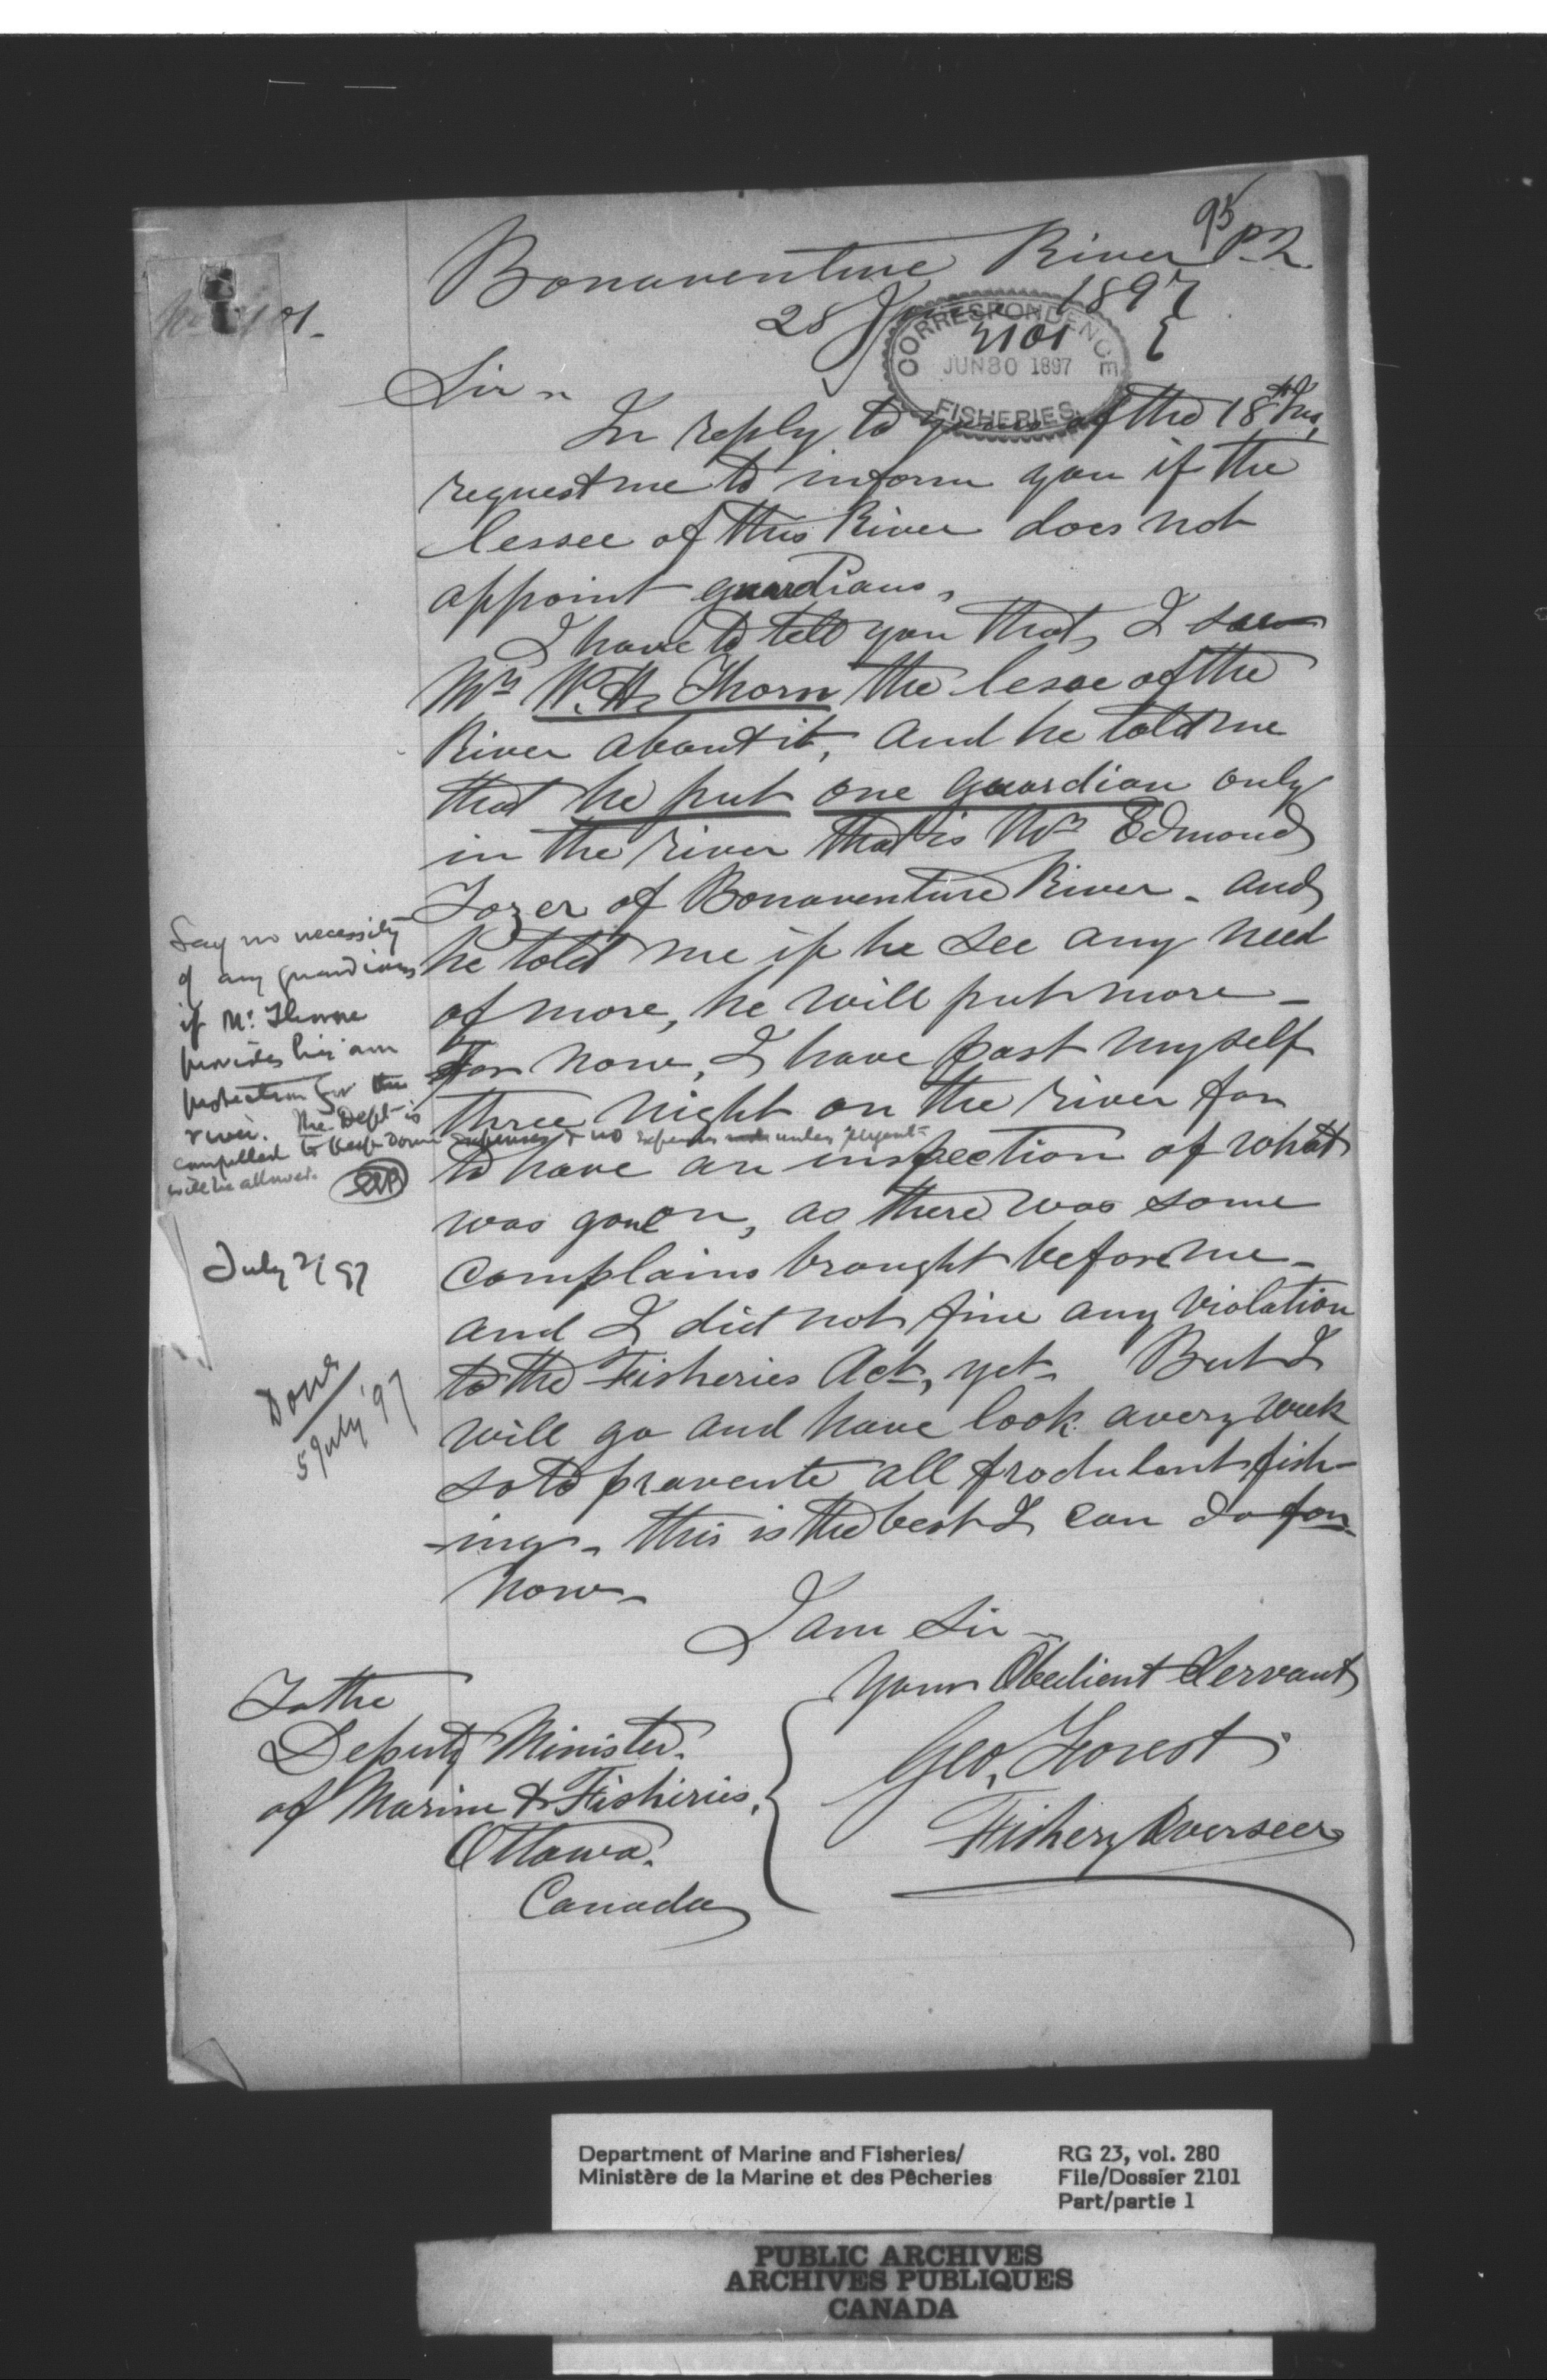 95
Bonaventure River P.Q.
28 June 1897
CORRESPONDENCE
2101
JUN 30 1897
FISHERIES
Sir
In reply to yours of the 18th Ins,
request me to inform you if the
lessee of this River does not
appoint guardians,
I have to tell you that, I saw
Mr W. H. Thorn the lesse of the
River about it, and he told me
that he put one guardian only
in the river that is Mr Edmond
Tozer of Bonaventure River - and
he told me if he see any need
of more, he will put more -
For now, I have past myself
three night on the river for
to have an inspection of what
was gone on, as there was some
complains brought before me -
and I dit not fine any violation
to the Fisheries Act, yet - But I
will go and have look avery week
so to pravente all frodulant fish-
-ing - this is the best I can do for
now -
I am Sir -
Your Obedient Servant
Geo, Forest
Fishery Overseer
To the
Deputy Minister.
of Marine & Fisheries,
Ottawa.
Canada
Say no necessity
of any guardians
if Mr. Thorne
provides his own
protection for the
river. The Dept is
compelled to keep down expenses & no expenses unless urgent
will be allowed.
July 2/97
Done
5 July '97
Department of Marine and Fisheries/
Ministère de la Marine et des Pêcheries
RG 23, vol. 280
File/Dossier 2101
Part/partie 1
PUBLIC ARCHIVES
ARCHIVES PUBLIQUES
CANADA